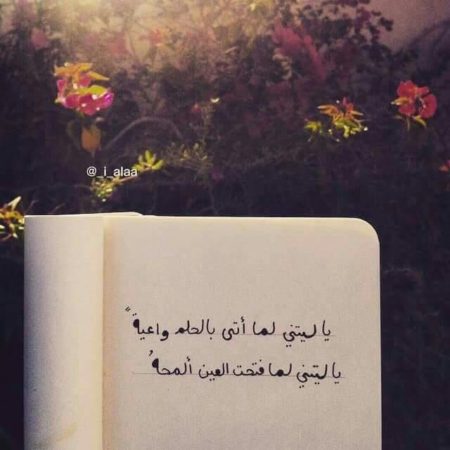 @_i_alaa
يا ليتني لما أتى بالحلم واعيةً
يا ليتني لما فتحت العين ألمحهُ